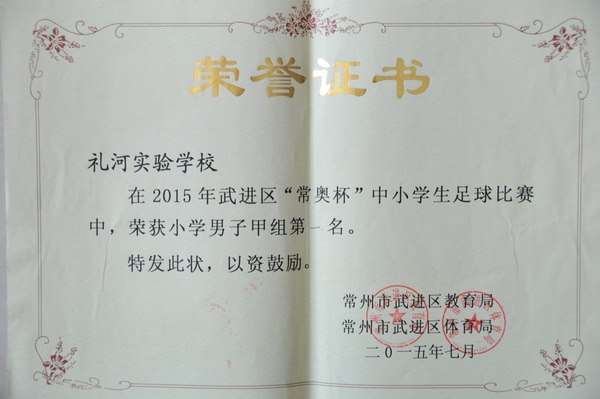 荣誉证书
礼河实验学校
在2015年武进区“常奥杯”中小学生足球比赛
中，荣获小学男子甲组第一名。
特发此状，以资鼓励。
常州市武进区教育局
常州市武进区体育局
二〇一五年七月